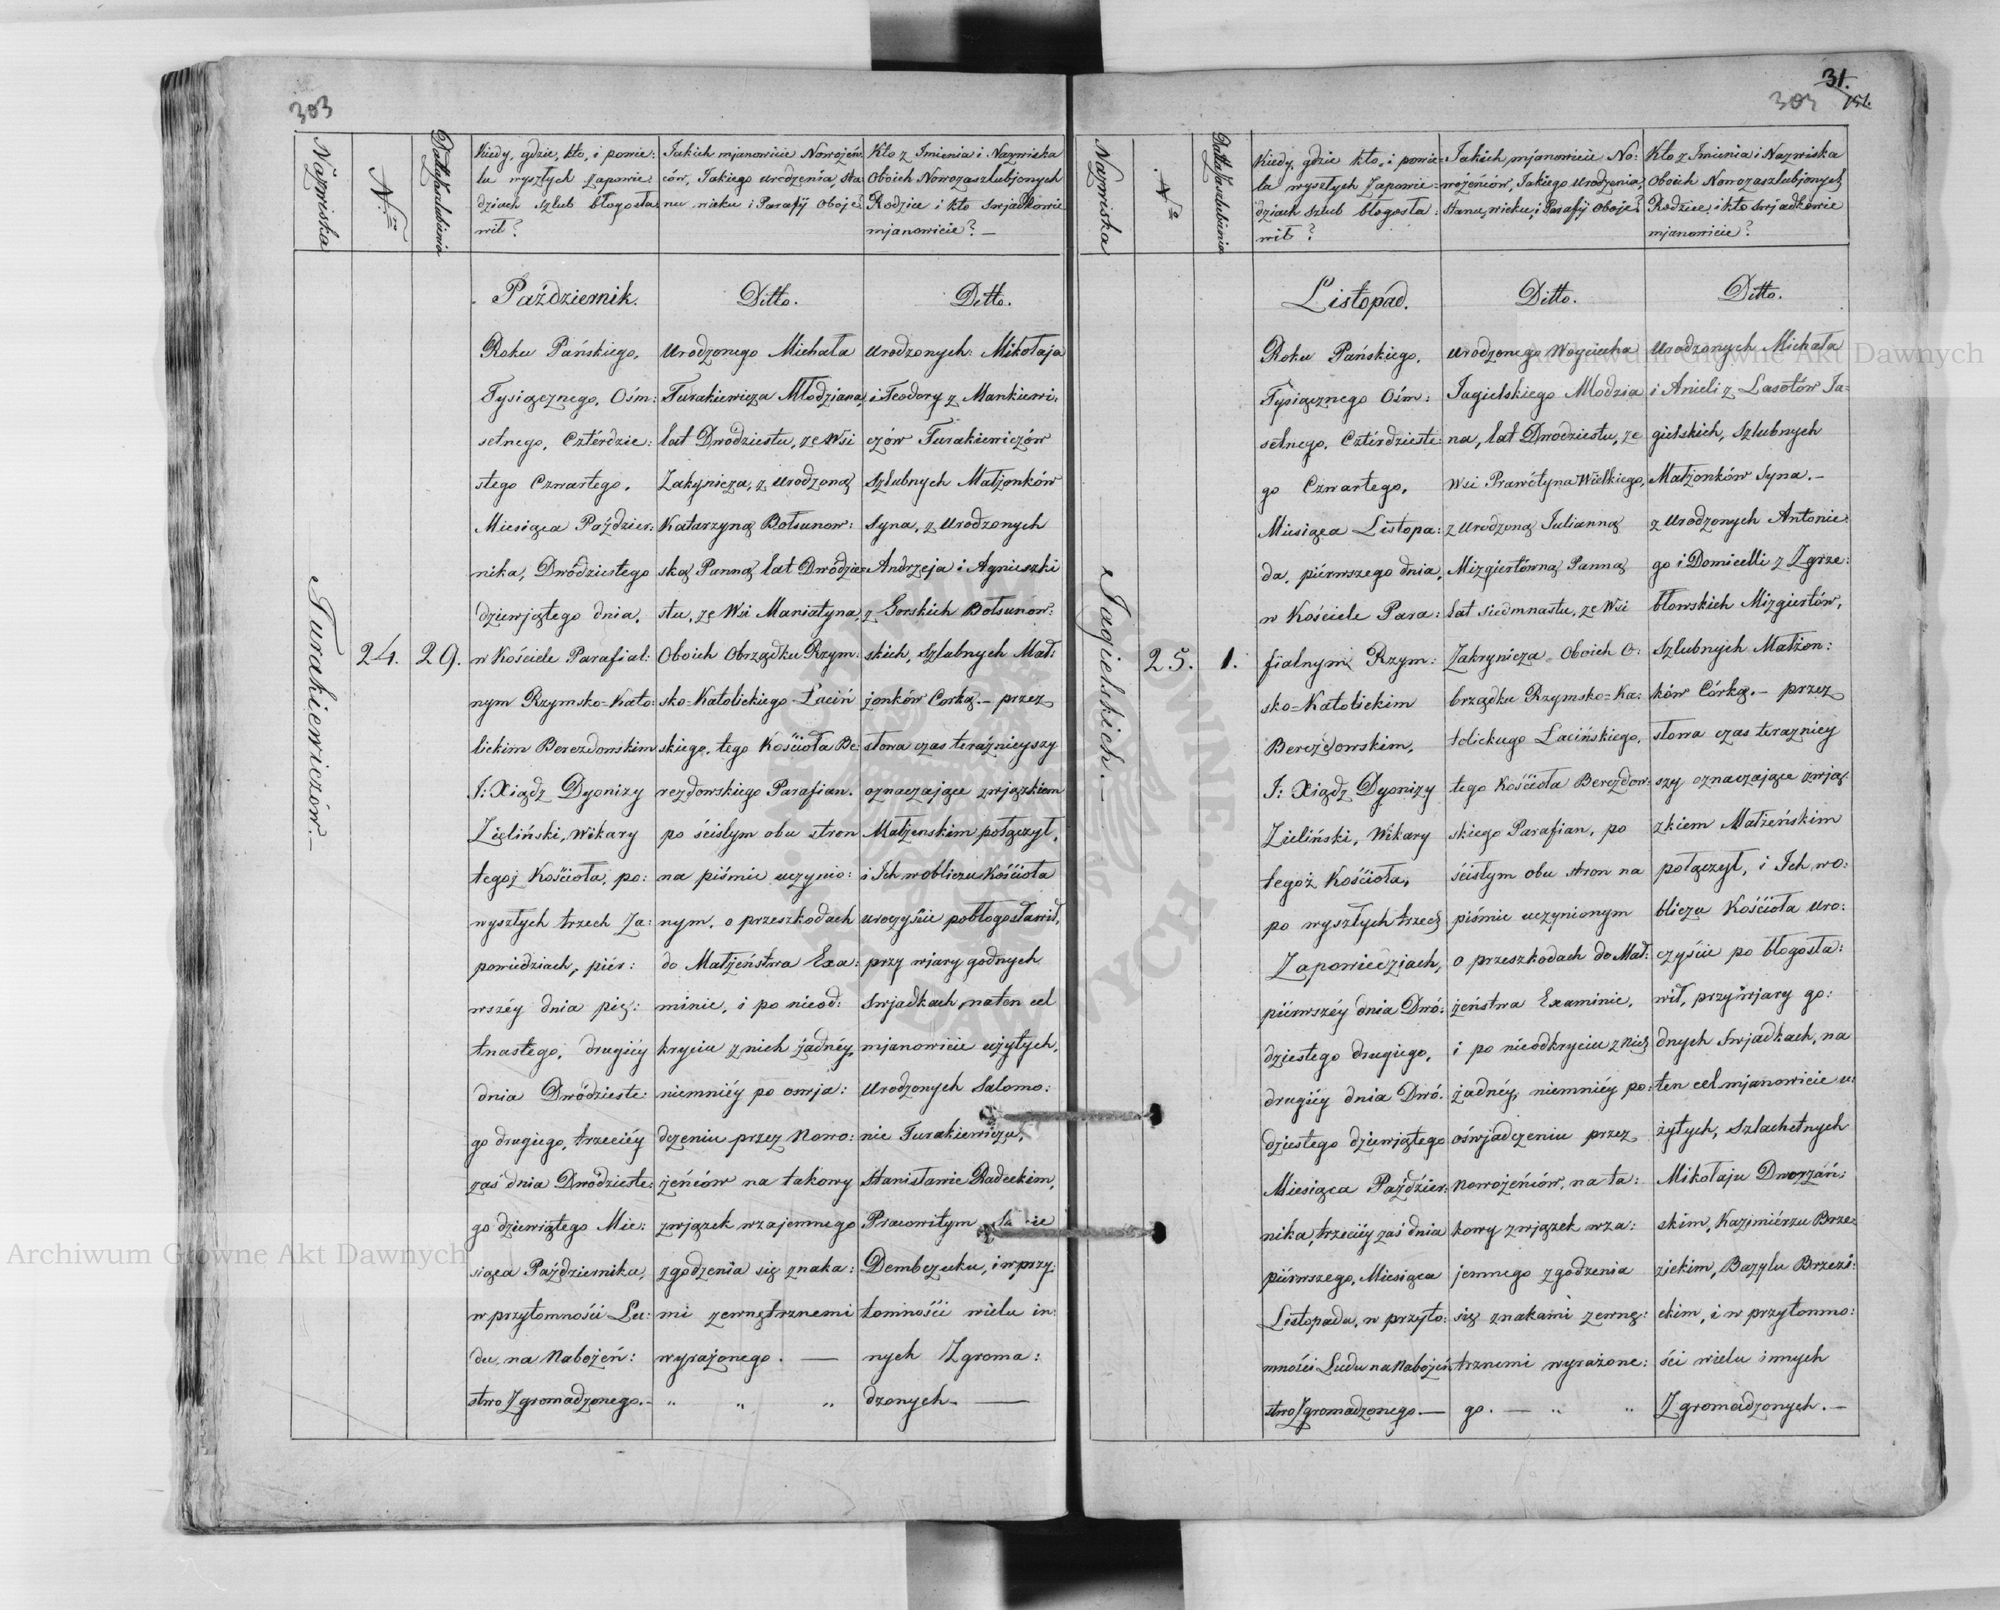 303
Nazwiska
N.ro
Datta zaslubienia
Kiedy, gdzie, kto, i powie:
lu wyszłych Zapowie:
dziach szlub błogosła:
wił?
Jakich mjanowicie Nowożeń:
ców, Jakiego urodzenia, sta
nu wieku i Parafij Oboje?
Kto z Imienia i Nazwiska
Oboich Nowozaszlubjonych
Rodzice i kto swjadkowie
mjanowicie? —
Październik.
Ditto.
Ditto.
Turakiewiczów.—
24.
29.
Roku Pańskiego,
Tysiącznego, Ośm:
setnego, Cztérdzie:
stego Czwartego,
Miesiąca Paździer:
nika, Dwódziestego
dziewjątego dnia,
w Kościele Parafial:
nym Rzymsko-Kato:
lickim Berezdowskim
J: Xiądz Dyonizy
Zieliński, Wikary
tegoż Kościoła, po:
wyszłych trzech Za:
powiedziach, piér:
wszéy dnia pię:
tnastego, drugiéy
dnia Dwódzieste:
go drugiego, trzeciéy
zaś dnia Dwódzieste:
go dziewiątego Mie:
siąca Października,
w przytomności Lu:
du, na Nabożeń:
stwo Zgromadzonego.—
Urodzonego Michała
Turakiewicza Młodziana,
lat Dwódziestu, ze Wsi
Zakrynicza, z urodzoną
Katarzyną Bołsunow:
ską Panną lat Dwódzie:
stu, ze Wsi Maniatyna,
Oboich Obrządku Rzym:
sko-Katolickiego Łaciń
skiego, tego Kościoła Be:
rezdowskiego Parafian.
po ścisłym obu stron
na piśmie uczynio:
nym, o przeszkodach
do Małżeństwa Exa:
minie, i po nieod:
kryciu z nich żadnéy,
niemniéy po oswja:
dczeniu przez Nowo:
żeńców na takowy
zwjązek wzajemnego
zgodzenia się znaka:
mi zewnętrznemi
wyrażonego. —
" " "
Urodzonych: Mikołaja
i Teodory z Mankiewi:
czów Turakiewiczów
Szlubnych Małżonków
Syna, z Urodzonych
Andrzeja i Agnieszki
z Gorskich Bołsunow:
skich, Szlubnych Mał:
żonków Corką.— przez
słowa czas teraźnieyszy
oznaczające zwjązkiem
Małżenskim połączył,
i Ich w obliczu Kościoła
uroczyście pobłogosławił,
przy wjary godnych
Swjadkach, na ten cel
mjanowicie użytych,
Urodzonych Salomo:
nie Turakiewiczu,
Stanisławie Radeckim,
Pracowitym
Dembczuku, i w przy:
tomności wielu in:
nych Zgroma:
dzonych. —
31.
303
151.
Nazwiska
N.ro
Datta Zaslubienia
Kiedy, gdzie kto, i powie:
la wyszłych Zapowie:
dziach szlub błogosła:
wił?
Jakich mjanowicie No:
wożeńców, Jakiego urodzenia,
Stanu, wieku, i Parafij Oboje?
Kto z Imienia i Nazwiska
Oboich Nowozaszlubjonych
Rodzice, i kto swjadkowie
mjanowicie?
Listopad.
Ditto.
Ditto.
Jagielskich.—
25.
1.
Roku Pańskiego,
Tysiącznego Ośm:
setnego, Cztérdzieste:
go Czwartego,
Miesiąca Listopa:
da, piérwszego dnia,
w Kościele Para:
fialnym Rzym:
sko=Katolickim
Berezdowskim,
J: Xiądz Dyonizy
Zieliński, Wikary
tegoż Kościoła,
po wyszłych trzech
Zapowiedziach,
piérwszéy dnia Dwó:
dziestego drugiego,
drugiéy dnia Dwó:
dziestego dziewjątego
Miesiąca Paździer:
nika, trzeciéy zaś dnia
piérwszego, Miesiąca
Listopada, w przyto:
mności Ludu na Nabożeń
stwo Zgromadzonego —
Urodzonego Woyciecha
Jagielskiego Młodzia
na, lat Dwodziestu, ze
Wsi Prawótyna Wielkiego,
z Urodzoną Julianną
Mizgiertówną Panną
lat siedmnastu, ze Wsi
Zakrynicza Oboich O:
brządku Rzymsko=Ka:
tolickugo Łacińskiego,
tego Kościoła Berezdow:
skiego Parafian, po
ścisłym obu stron na
piśmie uczynionym
o przeszkodach do Mał:
żeństwa Examinie,
i po nieodkryciu z nich
żadnéy, niemniéy po:
oświadczeniu przez
Nowożeńców, na ta:
kowy zwjązek wza:
jemnego zgodzenia
się znakami zewnę:
trznemi wyrażone:
go. — " "
Urodzonych Michała
i Anieli z Lasotów Ja:
gielskich, Szlubnych
Małżonków Syna.—
z Urodzonych Antonie:
go i Domicelli z Zgrze:
błowskich Mizgiertów,
Szlubnych Małżon:
ków Córką.— przez
słowa czas terazniey
szy oznaczające zwją:
zkiem Małżeńskim
połączył, i Ich, wo:
bliczu Kościoła uro:
czyście po błogosła:
wił, przy wjary go:
dnych Swjadkach, na
ten cel mjanowicie u:
żytych, Szlachetnych
Mikołaju Dworzań:
skim, Kazimiérzu Brze:
zickim, Bazylu Brzezi:
ckim, i w przytomno:
ści wielu innych
Zgromadzonych. —
Archiwum Główne Akt Dawnych
Archiwum Główne Akt Dawnych